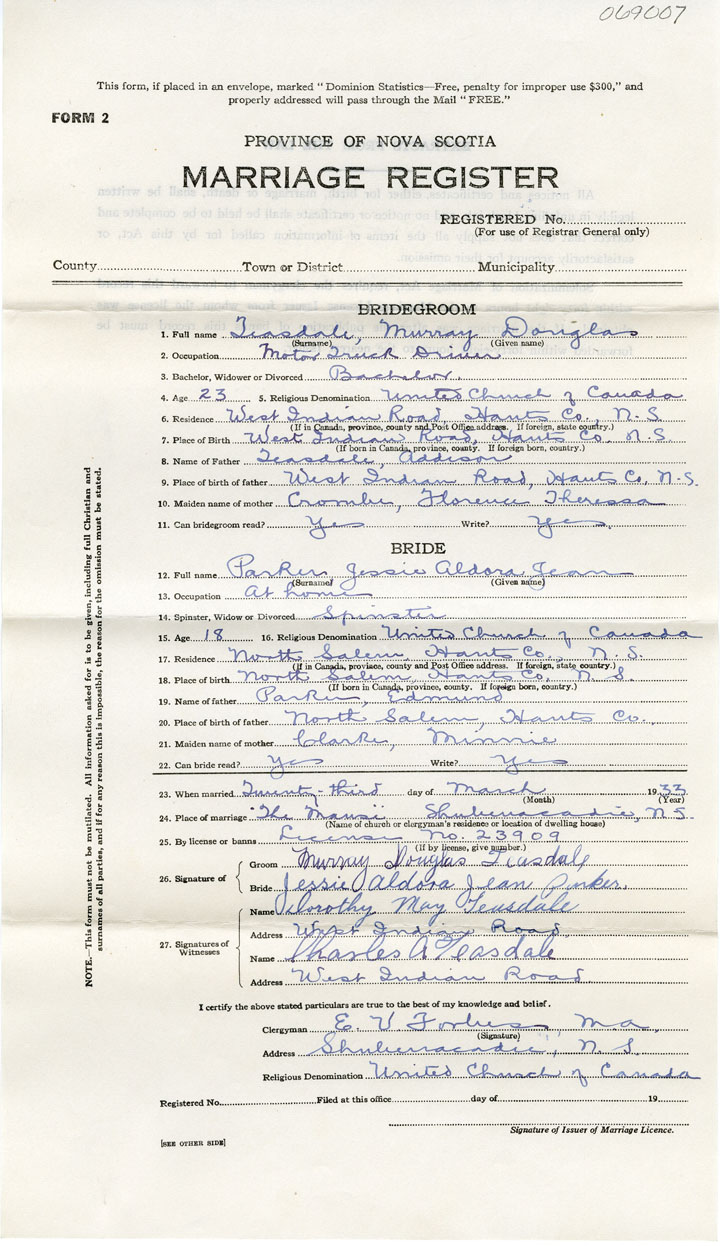 069007
This form, if placed in an envelope, marked "Dominion Statistics—Free, penalty for improper use $300," and
properly addressed will pass through the Mail "FREE."
FORM 2
PROVINCE OF NOVA SCOTIA
MARRIAGE REGISTER
REGISTERED No.
(For use of Registrar General only)
County Town or District Municipality
BRIDEGROOM
1. Full name Teasdale, Murray Douglas
(Surname) (Given name)
2. Occupation Motor Truck Driver
3. Bachelor, Widower or Divorced Bachelor.
4. Age 23 5. Religious Denomination United Church of Canada
6. Residence West Indian Road, Hants Co., N.S.
(If in Canada, province, county and Post Office address. If foreign, state country.)
7. Place of Birth West Indian Road, Hants Co. N.S
(If born in Canada, province, county. If foreign born, country.)
8. Name of Father Teasdale, Addison
9. Place of birth of father West Indian Road, Hants Co, N.S.
10. Maiden name of mother Crombe, Florence Theressa
11. Can bridegroom read? Yes Write? Yes
BRIDE
12. Full name Parker Jessie Aldora Jean
(Surname) (Given name)
13. Occupation At home
14. Spinster, Widow or Divorced Spinster
15. Age 18 16. Religious Denomination United Church of Canada
17. Residence North Salem, Hants Co., N.S.
(If in Canada, province, county and Post Office address. If foreign, state country.)
18. Place of birth North Salem, Hants Co., N S
(If born in Canada, province, county. If foreign born, country.)
19. Name of father Parker, Edmund
20. Place of birth of father North Salem, Hants Co.
21. Maiden name of mother Clarke, Minnie
22. Can bride read? Yes Write? Yes
23. When married Twenty-third day of March 1933
(Month) (Year)
24. Place of marriage "The Manse" Shubenacadie, N.S.
(Name of church or clergyman's residence or location of dwelling house)
25. By license or banns License No. 23909
(If by license, give number.)
26. Signature of Groom Murray Douglas Teasdale
Bride Jessie Aldora Jean Parker.
27. Signatures of Witnesses Name Dorothy May Teasdale
Address West Indian Road.
Name Charles A Teasdale
Address West Indian Road.
I certify the above stated particulars are true to the best of my knowledge and belief.
Clergyman E. V Forbes M a
(Signature)
Address Shubenacadie, N.S.
Religious Denomination United Church of Canada
Registered No. Filed at this office day of 19
Signature of Issuer of Marriage Licence.
[SEE OTHER SIDE]
NOTE.—This form must not be mutilated. All information asked for is to be given, including full Christian and
surnames of all parties, and if for any reason this is impossible, the reason for the omission must be stated.